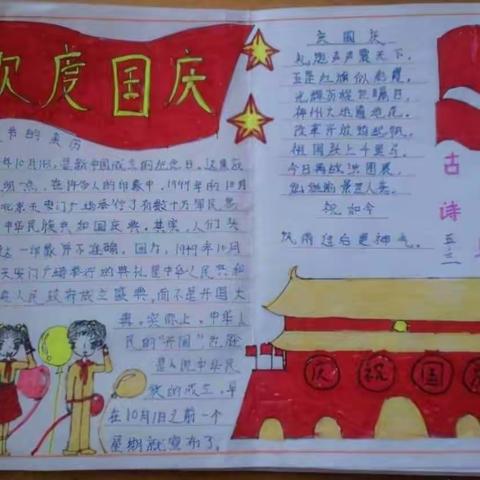 欢度国庆
节的来历
年10月1日,是新中国成立的纪念日。这里应
明一点,在许多人的印象中,1949年的10月
北京天安门广场举行了有数十万军民参
中华民族共和国庆典。其实,人们头
这一印象并不准确。因为,1949年10月
天安门广场举行的典礼是中华人民共和
央人民政府成立盛典,而不是开国大
典。实际上,中华人
民的"开国",也
是人民中华民
族的成立,早
在10月1日之前一个
星期就宣布了。
庆国庆
礼炮声声震天下,
五星红旗似彩霞。
光辉历程
神州大地遍地花。
改革开放
祖国
今日再战洪图展,
祝如今
风雨过后更神气。
古诗
庆祝国庆